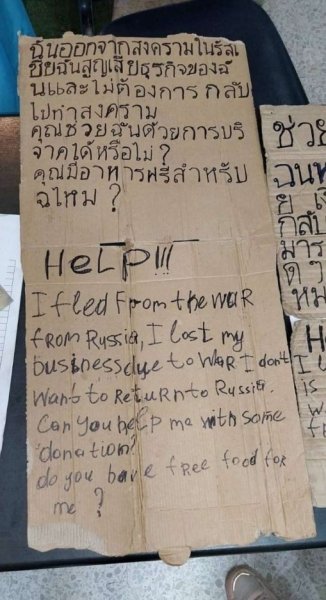 ฉันออกจากสงครามในรัสเ
ซียฉันสูญเสียธุรกิจของฉั
นและไม่ต้องการ กลับ
ไปทำสงคราม
คุณช่วยฉันด้วยการบริ
จาคได้หรือไม่?
คุณมีอาหารฟรีสำหรับ
ฉไหม ?
HeLP!!!
I fled from the waR
fRom Russia, I lost my
business due to waR I don't
want to RetuRn to Russia.
Can you help me with some
donation?
do you have fRee food foR
me ?
ช่วย
กลับ